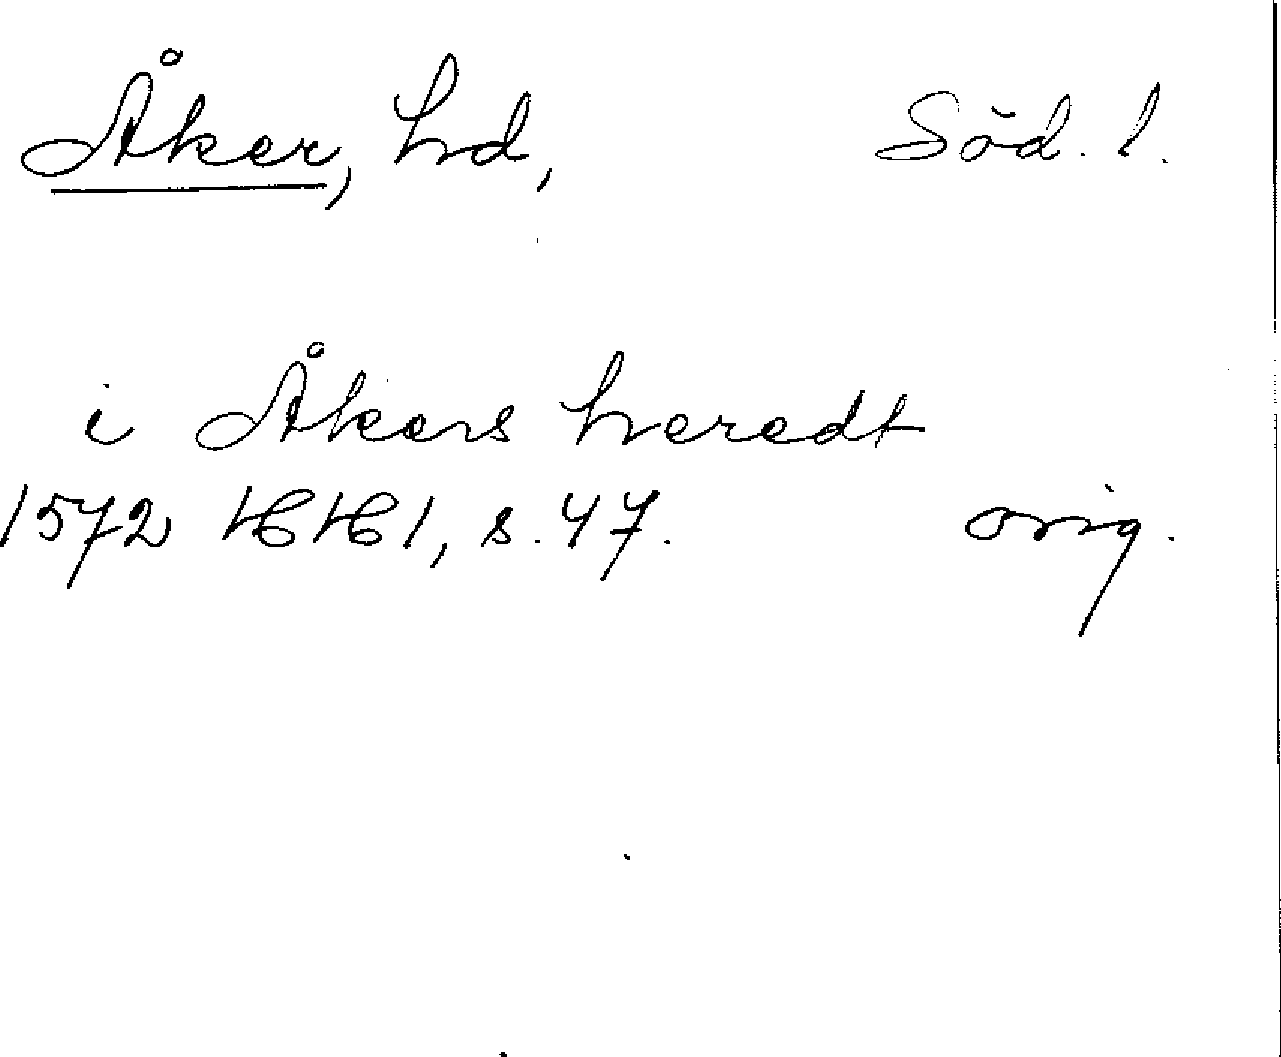 Åker, hd, Söd. l.
i Åkers heredt
1572 HH 1, s. 47. orig.